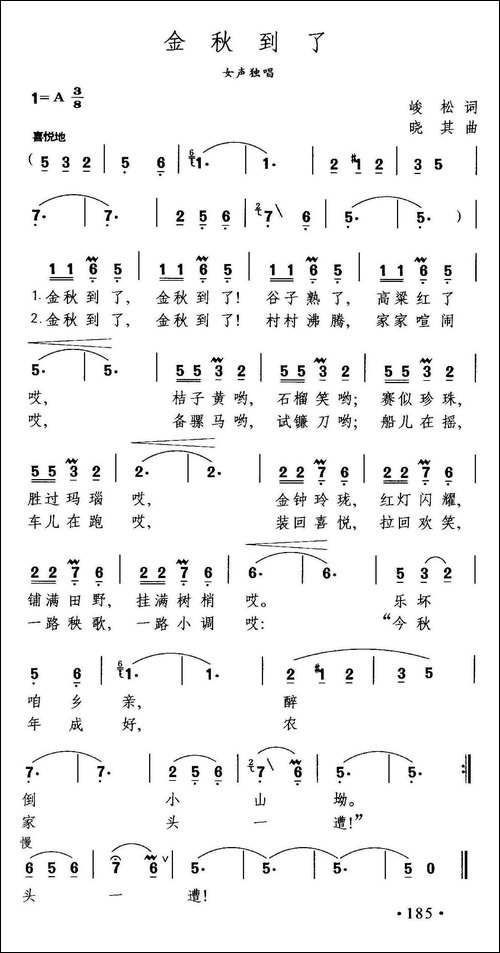 金秋到了
女声独唱
1=A 3/8
峻松 词
晓其 曲
喜悦地
( 5 3 2 | 5 6 | 6 1· | 1· | 2 #1 2 | 3 5 |
7· | 7· | 2 5 6 | 2 7 6 | 5· | 5· ) |
1 1 6 5 | 1 1 6 5 | 1 1 6 5 | 1 1 6 5 |
1.金秋到了, 金秋到了! 谷子熟了, 高粱红了
2.金秋到了, 金秋到了! 村村沸腾, 家家喧闹
5· | 5· | 5 5 3 2 | 5 5 3 2 | 5 5 3 2 |
哎, 桔子黄哟, 石榴笑哟; 赛似珍珠,
哎, 备骡马哟, 试镰刀哟; 船儿在摇,
5 5 3 2 | 2· | 2· | 2 2 7 6 | 2 2 7 6 |
胜过玛瑙 哎, 金钟玲珑, 红灯闪耀,
车儿在跑 哎, 装回喜悦, 拉回欢笑,
2 2 7 6 | 2 2 7 6 | 6· | 6· | 5 3 2 |
铺满田野, 挂满树梢 哎。 乐坏
一路秧歌, 一路小调 哎: “今秋
5 6 | 6 1· | 1· | 2 #1 2 | 3 5 |
咱乡亲, 醉
年成好, 农
7· | 7· | 2 5 6 | 2 7 6 | 5· | 5· :‖
倒 小山坳。
家 头一遭!”
慢
6 5 6 | 7 6 ∨ | 5· | 5· | 5· | 5 0 ‖
头一遭!
·185·